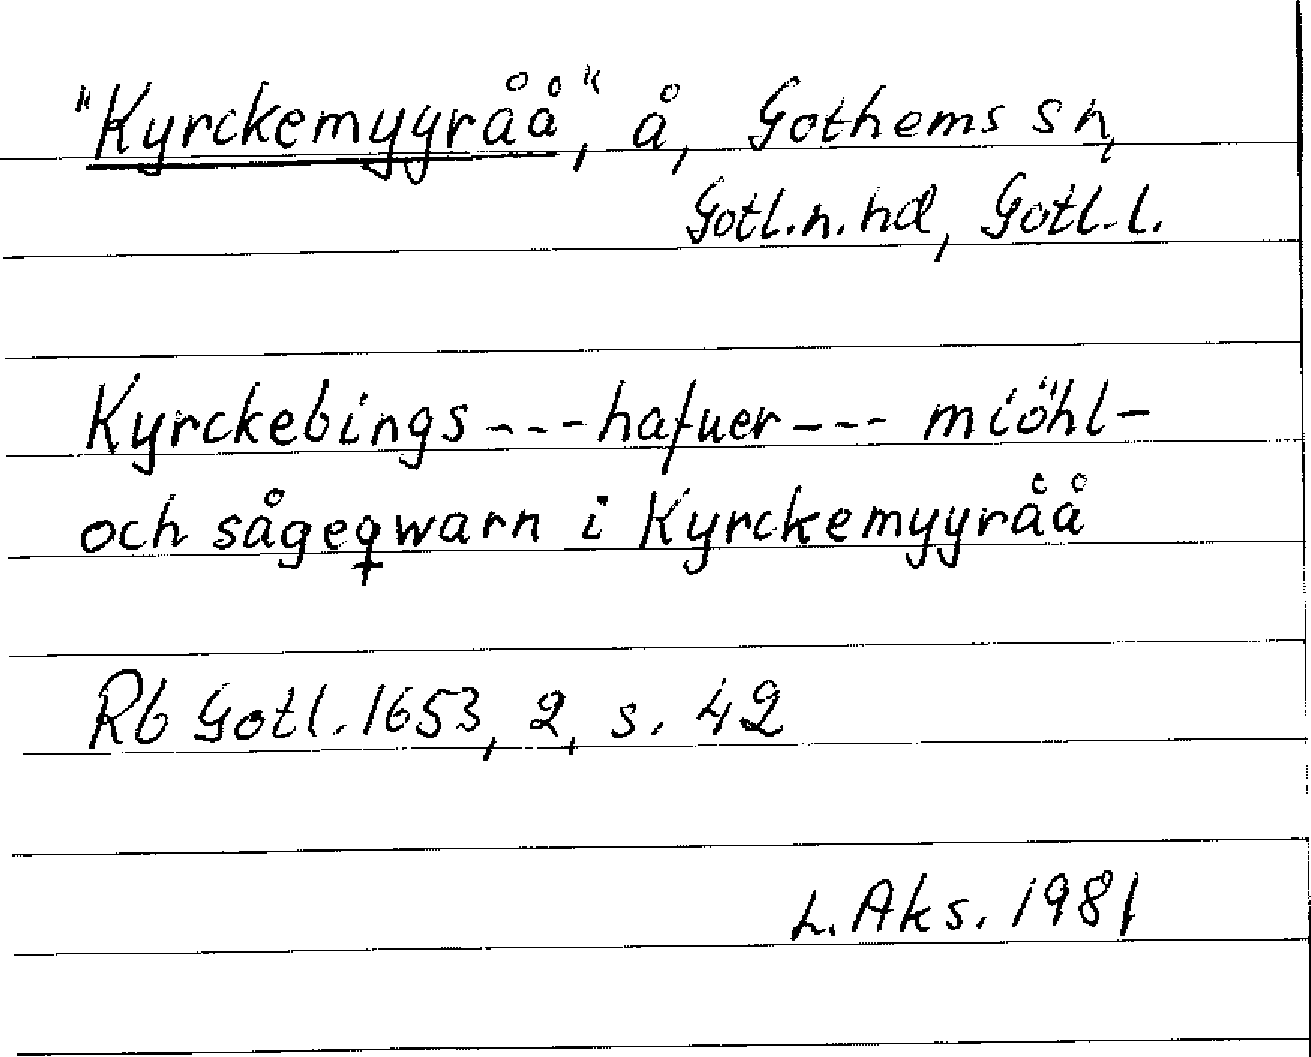 "Kyrckemyyråå", å, Gothems sn,
Gotl.n.hd, Gotl.l.
Kyrckebings --- hafuer --- miöhl-
och sågeqwarn i Kyrckemyyråå
Rb Gotl. 1653, 2, s. 42
L. Aks. 1981